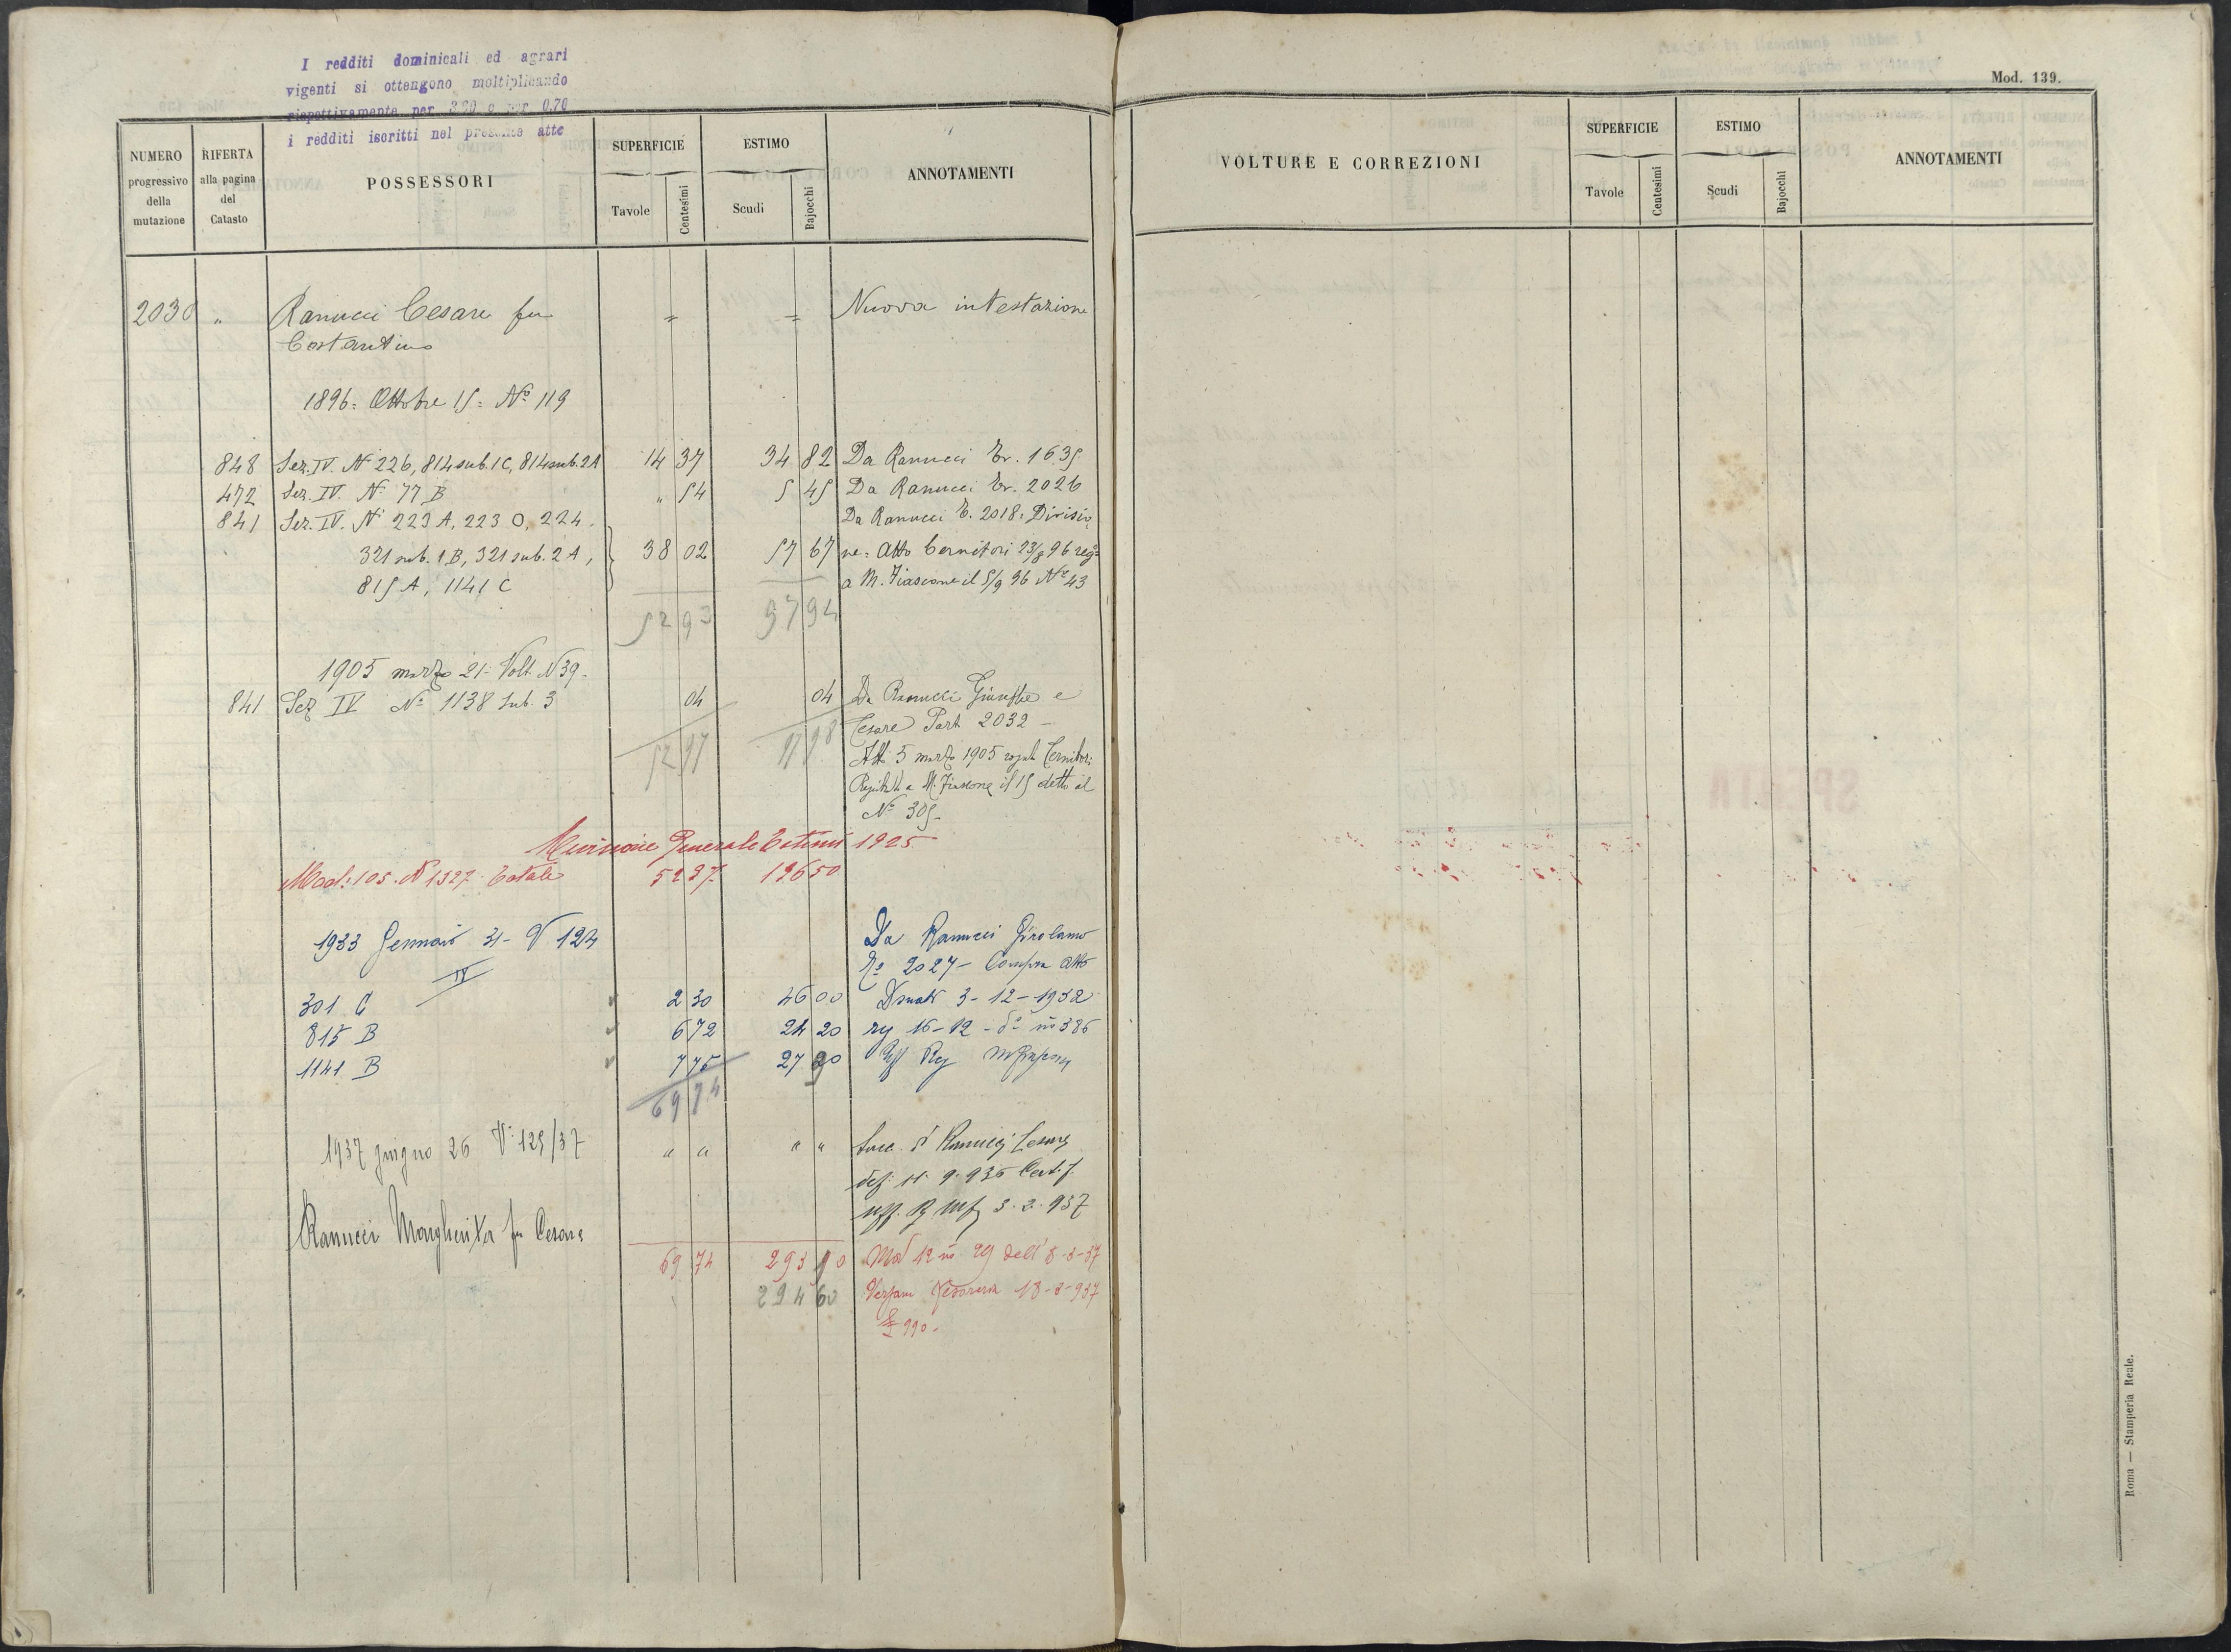 I redditi dominicali ed agrari
vigenti si ottengono moltiplicando
rispettivamente per 3.20 e per 0,70
i redditi iscritti nel presente atto
NUMERO progressivo della mutazione
RIFERTA alla pagina del Catasto
POSSESSORI
SUPERFICIE
Tavole Centesimi
ESTIMO
Scudi Bajocchi
ANNOTAMENTI
2030 " Ranucci Cesare fu = = Nuova intestazione
Costantino
1896 = Ottobre 15 = Nº 119
848 Sez. IV. Nº 226, 814 sub. 1 C, 814 sub. 2 A 14 37 34 82 Da Ranucci Er. 1635
472 Sez. IV. Nº 77 B " 54 5 45 Da Ranucci Er. 2026
841 Sez. IV. Nº 223 A, 223 O, 224. Da Ranucci E. 2018: Divisio
321 sub. 1 B, 321 sub. 2 A, 38 02 57 67 ne: Atto Cernitori 23/8 96 regº
815 A, 1141 C a M. Fiascone il 5/9 96 Nº 43
52 93 97 94
1905 marzo 21 - Volt. N 39 -
841 Sez IV Nº 1138 Sub. 3 04 04 Da Ranucci Giuseppe e
Cesare Part 2032 -
52 97 97 98
Atto 5 marzo 1905 rogato Cernitori
Registrato a M. Fiascone il 15 detto al
Nº 305 -
Revisione Generale Estimi 1925
Mod: 105. N 1327. Totale 52 97 196 50
1933 Gennaio 31 - V 124 Da Ranucci Girolamo
Nº 2027 - Compra Atto
IV
301 C 2 30 46 00 3 - 12 - 1932
815 B 6 72 24 20 reg 16 - 12 - dº nº 386
1141 B 7 75 27 90 Uff Reg
69 74
1937 giugno 26 V: 129/37 " " " " Succ. di Ranucci Cesare
def: 11. 9. 936 Certif.
Ranucci Margherita fu Cesare uff. R 3. 2. 937
69 74 293 90 Mod 12 nº 29 dell' 8-3-37
294 60 Versam Tesoreria 13-3-937
£ 990 -
Mod. 139.
VOLTURE E CORREZIONI
SUPERFICIE
Tavole Centesimi
ESTIMO
Scudi Bajocchi
ANNOTAMENTI
Roma — Stamperia Reale.